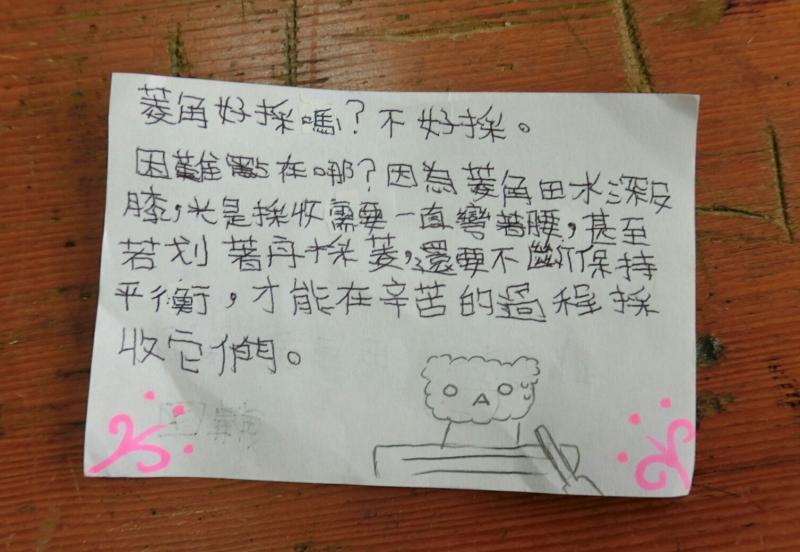 菱角好採嗎?不好採。
困難點在哪?因為菱角田水深及
膝,光是採收需要一直彎著腰,甚至
若划著舟採菱,還要不斷保持
平衡,才能在辛苦的過程採
收它們。